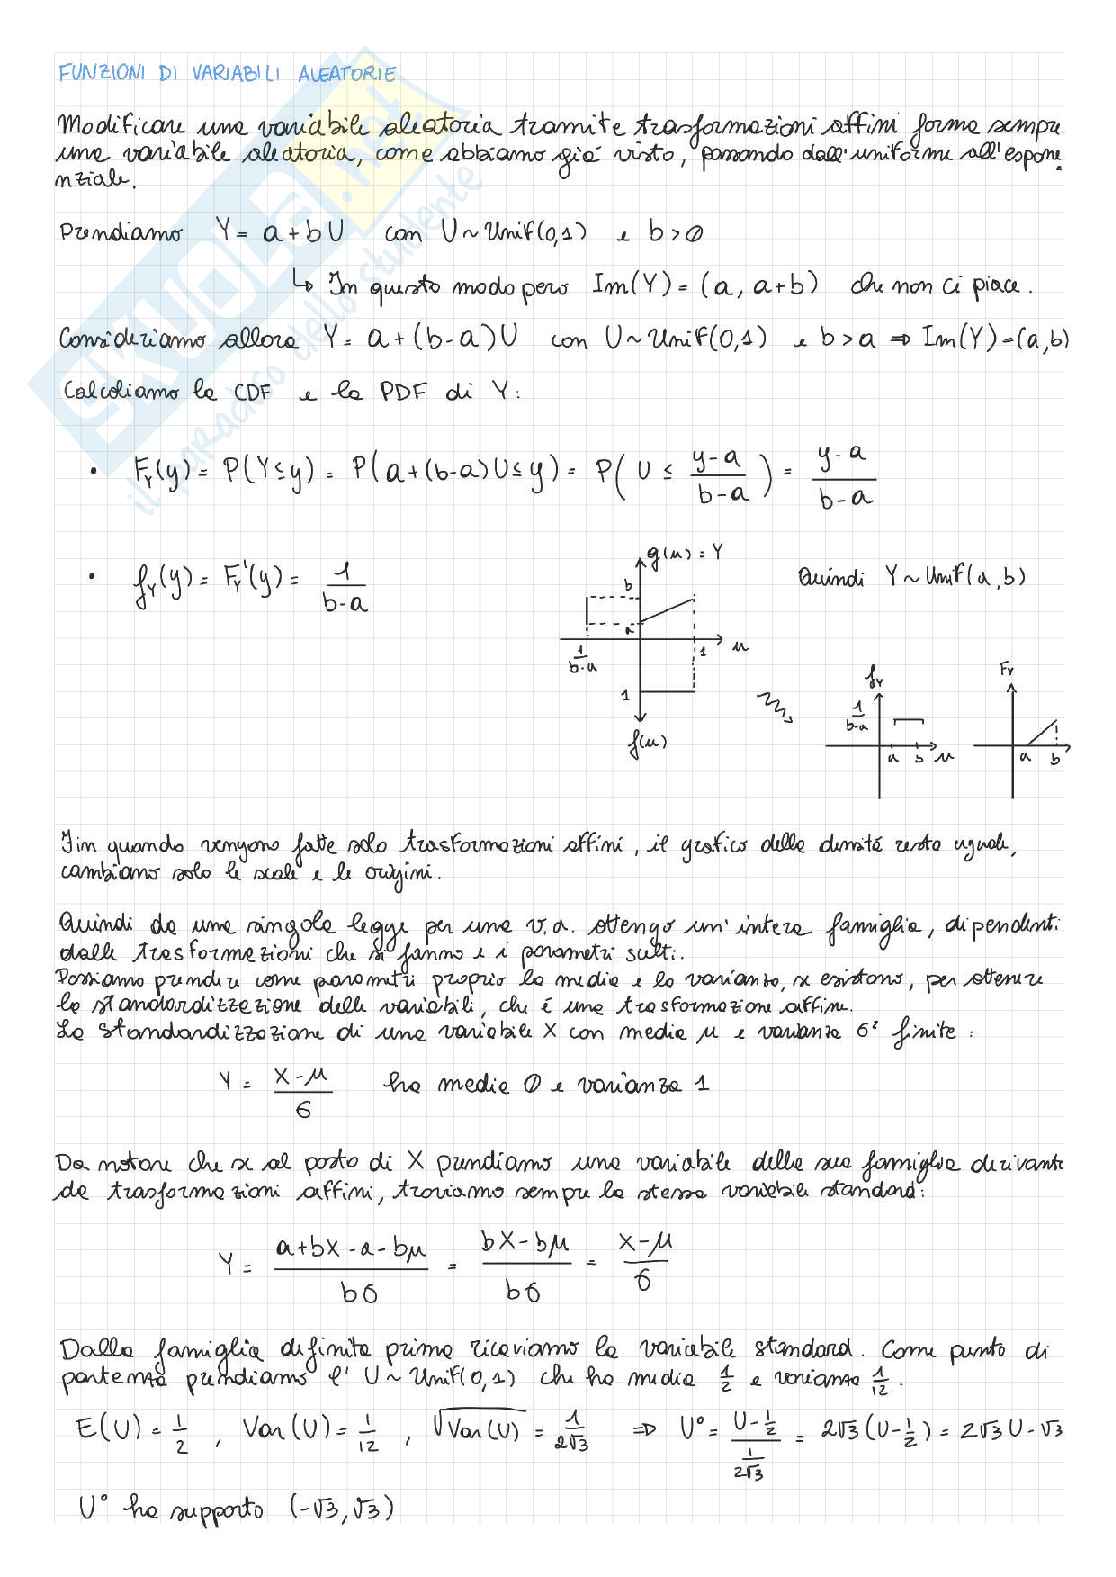 FUNZIONI DI VARIABILI ALEATORIE
Modificare una variabile aleatoria tramite trasformazioni affini forma sempre
una variabile aleatoria, come abbiamo già visto, passando dall'uniforme all'espone
nziale.
Prendiamo Y = a + bU con U ~ Unif(0,1) e b > 0
↳ In questo modo però Im(Y) = (a, a+b) che non ci piace.
Consideriamo allora Y = a + (b-a)U con U ~ Unif(0,1) e b > a ⇒ Im(Y) = (a,b)
Calcoliamo la CDF e la PDF di Y:
• F_Y(y) = P(Y ≤ y) = P(a + (b-a)U ≤ y) = P(U ≤ (y-a)/(b-a)) = (y-a)/(b-a)
• f_Y(y) = F_Y'(y) = 1/(b-a)
g(u) = Y
b
a
1/(b-a)
1
u
1
f(u)
Quindi Y ~ Unif(a,b)
f_Y
1/(b-a)
a b u
F_Y
a b
Fin quando vengono fatte solo trasformazioni affini, il grafico della densità resta uguale,
cambiamo solo le scale e le origini.
Quindi da una singola legge per una v.a. ottengo un'intera famiglia, dipendenti
dalle trasformazioni che si fanno e i parametri scelti.
Possiamo prendere come parametri proprio la media e la varianza, se esistono, per ottenere
la standardizzazione delle variabili, che è una trasformazione affine.
La standardizzazione di una variabile X con media μ e varianza σ² finite:
Y = (X-μ)/σ ha media 0 e varianza 1
Da notare che se al posto di X prendiamo una variabile della sua famiglia derivante
da trasformazioni affini, troviamo sempre la stessa variabile standard:
Y = (a+bX-a-bμ)/(bσ) = (bX-bμ)/(bσ) = (X-μ)/σ
Dalla famiglia definita prima ricaviamo la variabile standard. Come punto di
partenza prendiamo l'U ~ Unif(0,1) che ha media 1/2 e varianza 1/12.
E(U) = 1/2 , Var(U) = 1/12 , √Var(U) = 1/(2√3) ⇒ U° = (U-1/2)/(1/(2√3)) = 2√3(U-1/2) = 2√3U-√3
U° ha supporto (-√3, √3)
SKUOLA.net
il paradiso dello studente